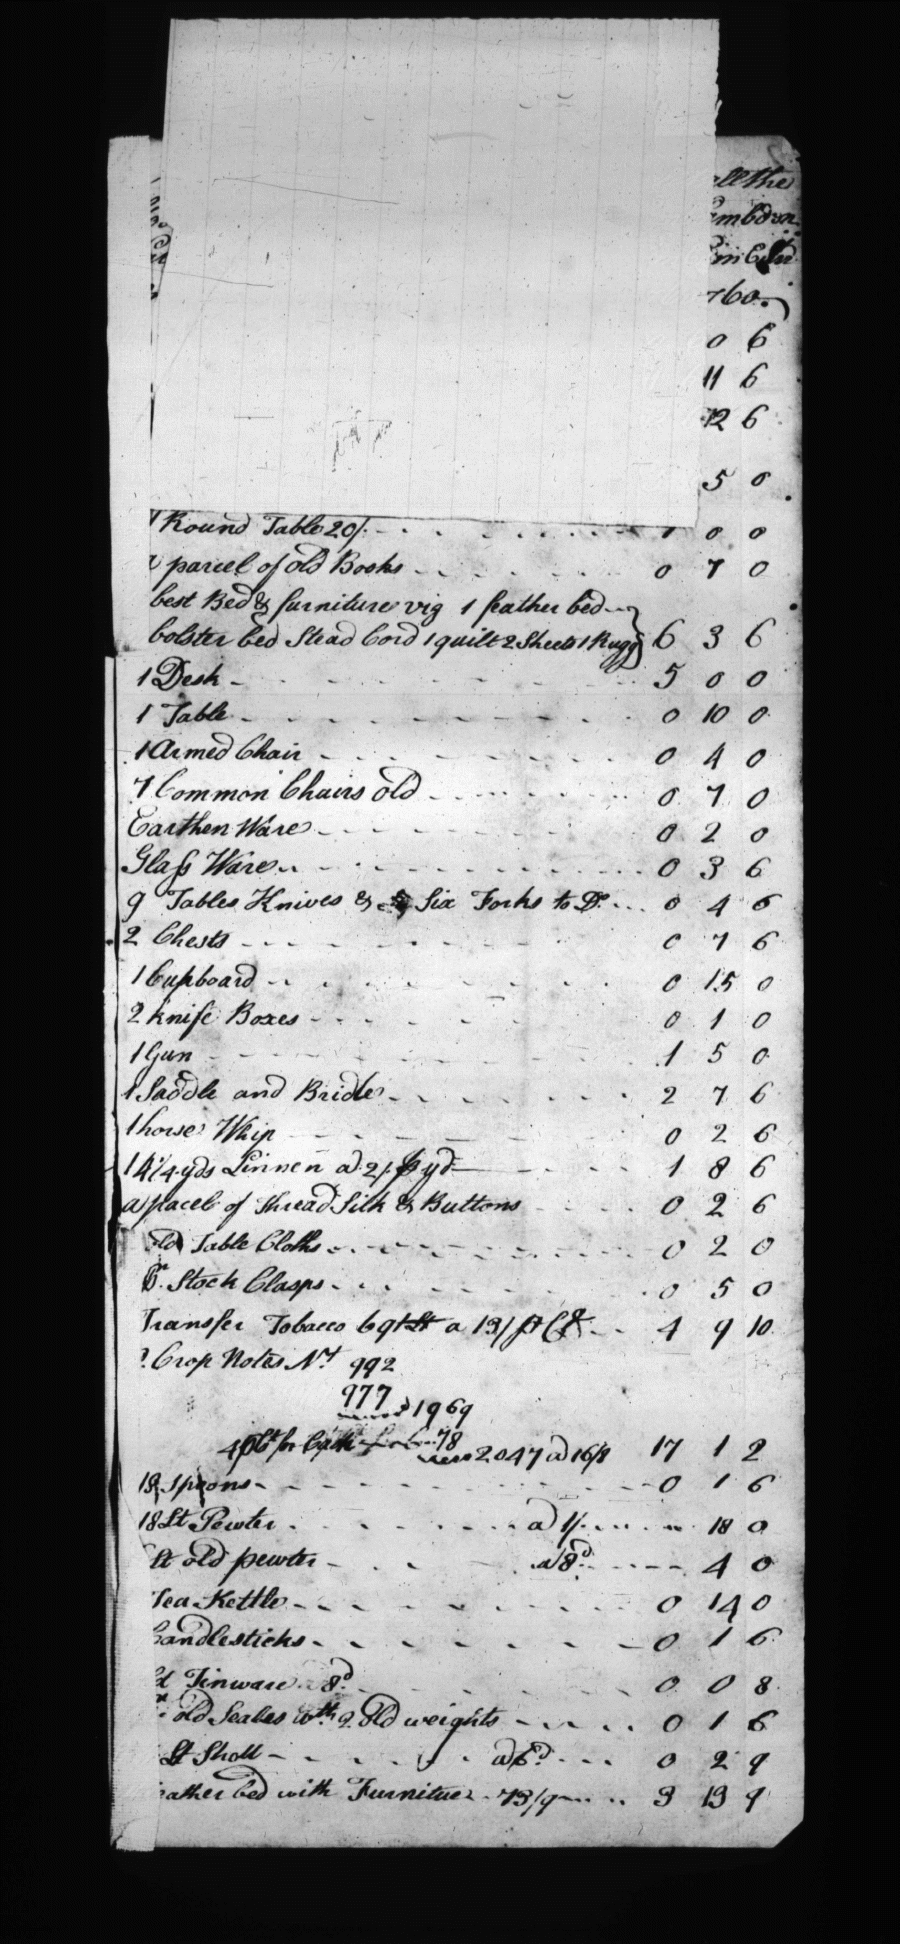 all the
760.
0 6
11 6
12 6
5 0
1 Round Table 20/ 1 0 0
a parcel of old Books 0 7 0
best Bed & furniture viz 1 feather bed
bolster bed Stead Cord 1 quilt 2 Sheets 1 Rugg 6 3 6
1 Desk 5 0 0
1 Table 0 10 0
1 Armed Chair 0 4 0
7 Common Chairs old 0 7 0
Earthen Ware 0 2 0
Glass Ware 0 3 6
9 Tables Knives & Six Forks to Do. 0 4 6
2 Chests 0 7 6
1 Cupboard 0 15 0
2 Knife Boxes 0 1 0
1 Gun 1 5 0
1 Saddle and Bridle 2 7 6
1 horse Whip 0 2 6
14 1/4 yds Linnen a 2/ p yd 1 8 6
a pacel of thread Silk & Buttons 0 2 6
old Table Cloths 0 2 0
pr. Stock Clasps 0 5 0
Transfer Tobacco 691 lt a 13/ p Ct 4 9 10
2 Crop Notes No 992
977
1969
4 p Ct for Cask 78
2047 a 16/8 17 1 2
18 Spoons 0 1 6
18 Lt Pewter a 1/ 18 0
Lt old pewter a 8d 4 0
Tea Kettle 0 14 0
Candlesticks 0 1 6
Lt Tinware 8d 0 0 8
pr old Scales wth 2 Old weights 0 1 6
Lt Shott a 6d 0 2 9
feather bed with Furniture 73/9 3 13 9